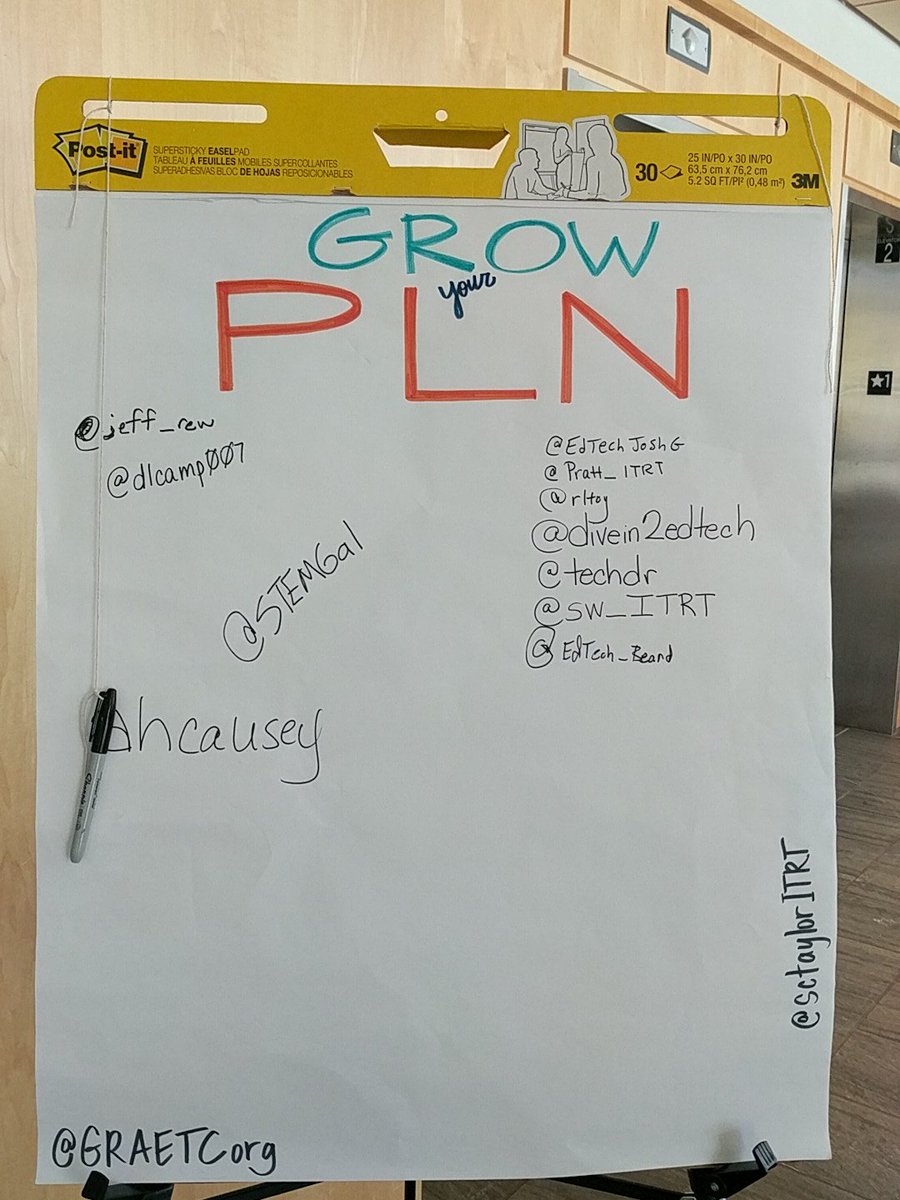 Post-it
SUPERSTICKY EASELPAD
TABLEAU À FEUILLES MOBILES SUPERCOLLANTES
SUPERADHESIVAS BLOC DE HOJAS REPOSICIONABLES
30
25 IN/PO x 30 IN/PO
63,5 cm x 76,2 cm
5.2 SQ FT/PI² (0,48 m²)
3M
GROW
your
PLN
@jeff_rew
@dlcamp007
@STEMGal
hcausey
@EdTechJoshG
@Pratt_ITRT
@rltoy
@divein2edtech
@techdr
@SW_ITRT
@EdTech_Beard
@sctaylorITRT
@GRAETCorg
Sharpie
2
★1